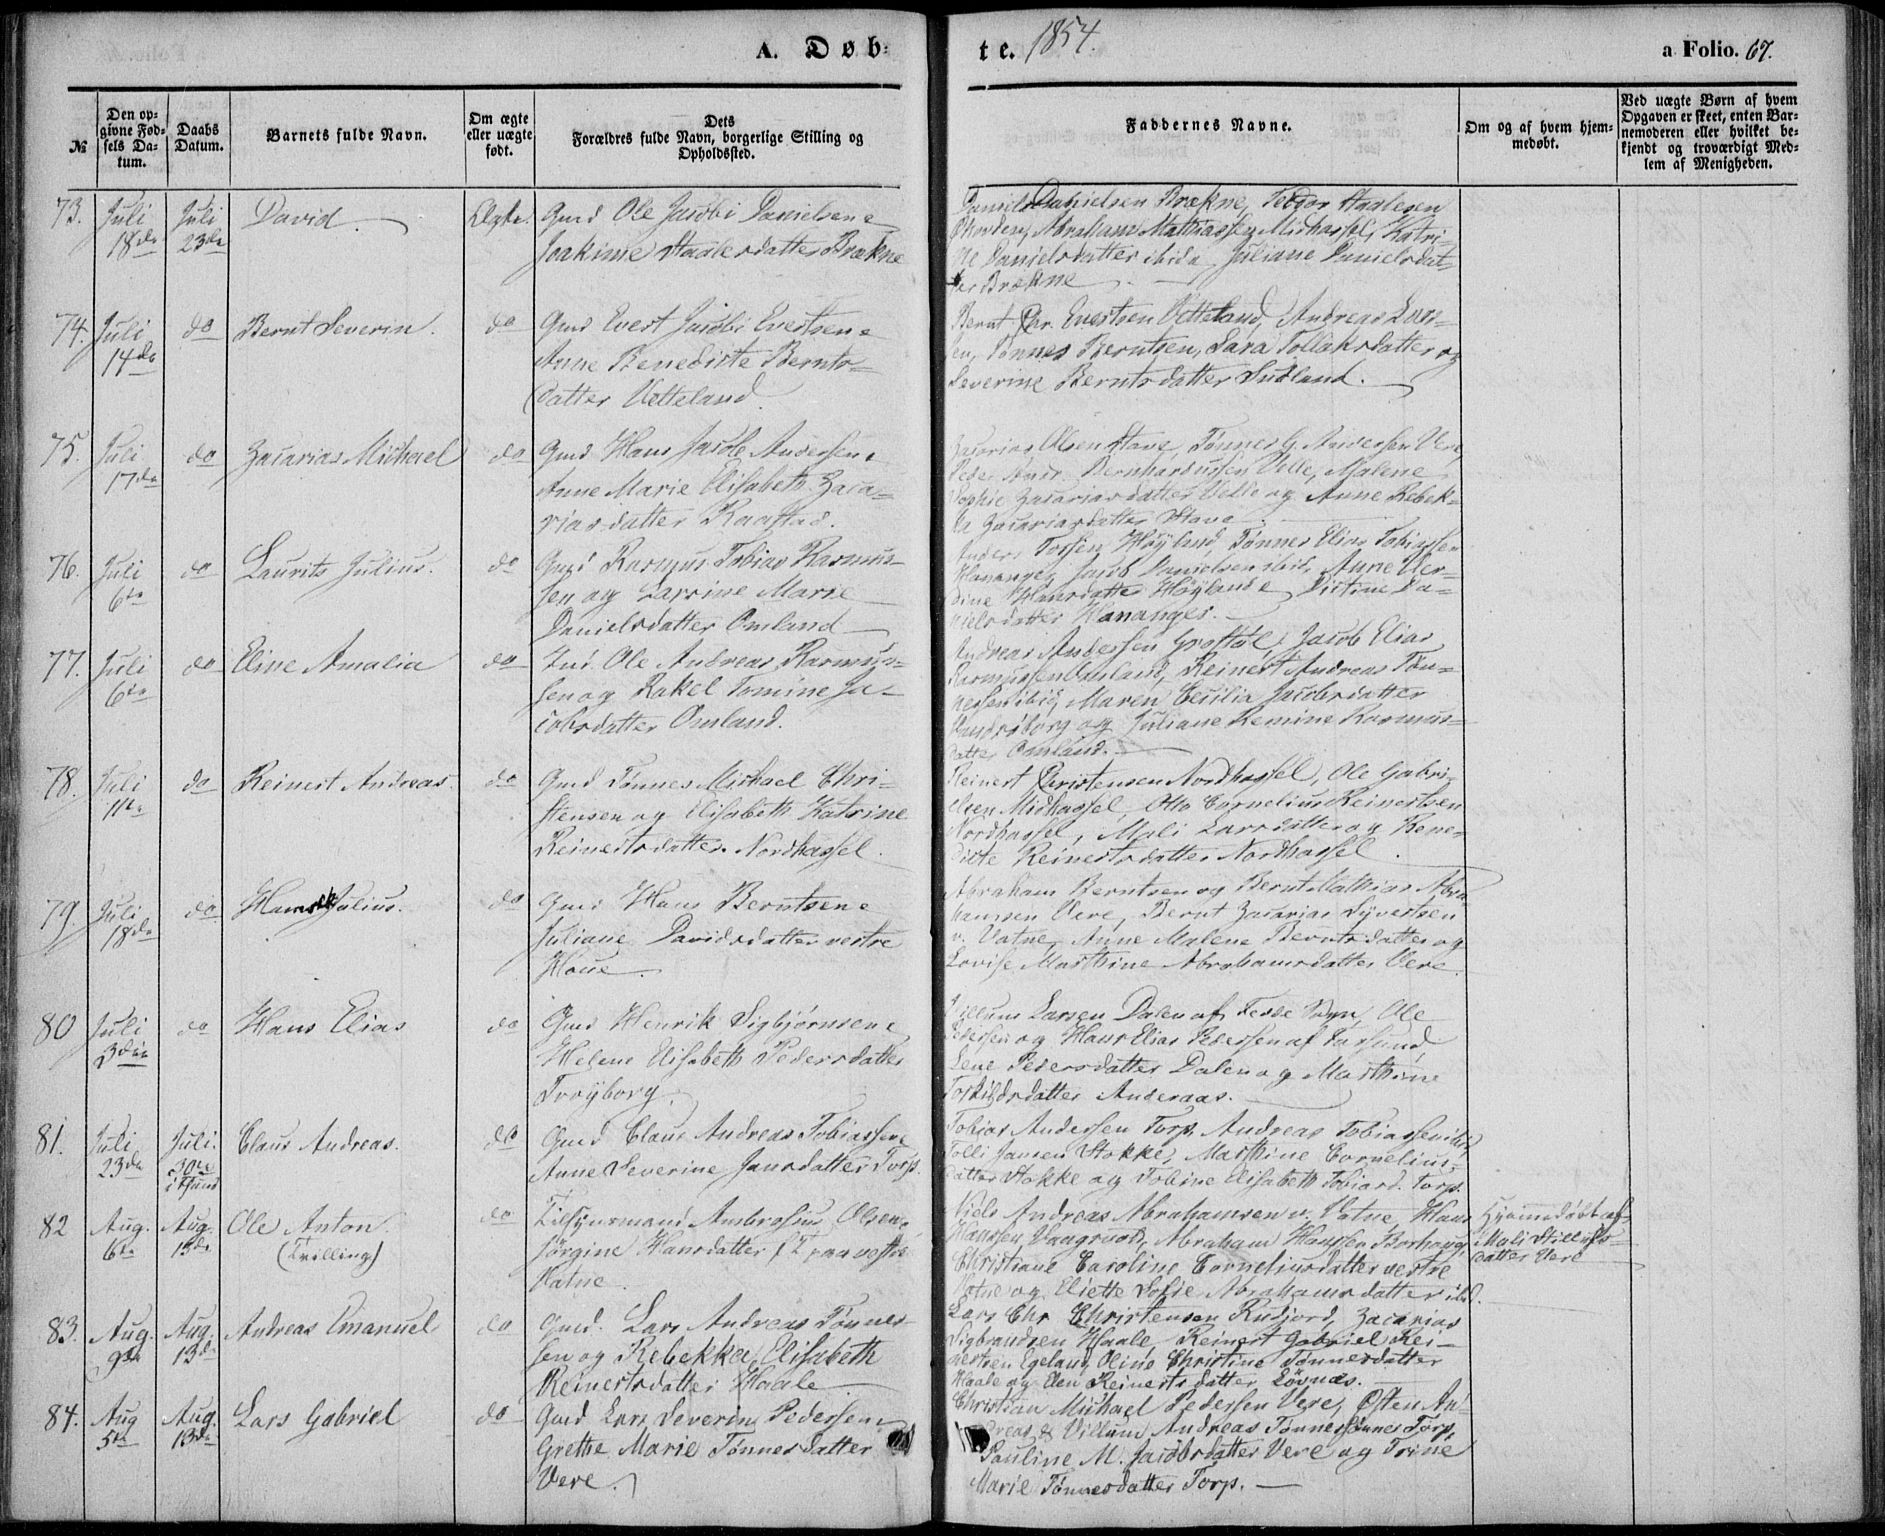 A. Døb-
te. 1854.
a Folio. 67.
№
Den op-
givne Fød-
sels Da-
tum.
Daabs
Datum.
Barnets fulde Navn.
Om ægte
eller uægte
født.
Dets
Forældres fulde Navn, borgerlige Stilling og
Opholdssted.
Faddernes Navne.
Om og af hvem hjem-
medøbt.
Ved uægte Børn af hvem
Opgaven er skeet, enten Bar-
nemoderen eller hvilket be-
kjendt og troværdigt Med-
lem af Menigheden.
73.
Juli
18de
Juli
23de
David
Ægte.
Gmd Ole Jacobi Danielsen &
Joakime Staalesdatter Brækne
Daniel Danielsen Brækne, Staalesen
Abraham Mathiassen Midhassel, Katri-
ne Danielsdatter ibid & Juliane Danielsdat-
ter Brækne
74.
Juli
14de
do
Bernt Severin.
do
Gmd Evert Jacobi Evertsen &
Anne Benedicte Bernts-
datter Vetteland
Bernt Chr. Evertsen Vetteland, Andreas Lar-
sen, Tønnes Berntsen, Sara Tollaksdatter og
Severine Berntsdatter Sudland.
75.
Juli
17de
do
Zacarias Michael
do
Gmd Hans Jacob Andersen &
Anne Marie Elisabeth Zaca-
riasdatter Raastad.
Zacarias Olsen Stave, Tønnes G. Andersen Vere,
Peder Andr. Bernhardussen Velle, Malene
Sophie Zacariasdatter Velle og Anne Rebek-
ka Zacariasdatter Stave
76.
Juli
6te
do
Laurits Julius.
do
Gmd Rasmus Tobias Rasmus-
sen og Larrine Marie
Danielsdatter Omland
Anders Torsen Høyland, Tønnes Elias Tobiassen
Hananger, Jacob Danielsen ibid, Anne Ber-
dine Hansdatter Høyland & Distine Da-
nielsdatter Hananger.
77.
Juli
6te
do
Eline Amalia
do
Ind. Ole Andreas Rasmus-
sen og Rakel Tomine Ja-
cobsdatter Omland.
Andreas Andersen Jacob Elias
Rasmussen Omland, Reinert Andreas Tøn-
nessen ibid, Maren Cecilia Jacobsdatter
og Juliane Remine Rasmus-
datter Omland.
78.
Juli
11te
do
Reinert Andreas.
do
Gmd Tønnes Michael Chri-
stensen og Elisabeth Katrine
Reinertsdatter Nordhassel.
Reinert Christensen Nordhassel, Ole Gabri-
elsen Midhassel, Otto Cornelius Reinertsen
Nordhassel, Mali Larsdatter og Bene-
dicte Reinertsdatter Nordhassel
79.
Juli
18de
do
Julius.
do
Gmd Hans Berntsen &
Juliane Davidsdatter vestre
Houe.
Abraham Berntsen og Bernt Mathias Abra-
hamsen Vere, Bernt Zacarias Syvertsen
v. Vatne, Anne Malene Berntsdatter og
Lovise Marthine Abrahamsdatter Vere
80
Juli
3die
do
Hans Elias
do
Gmd Henrik Sigbjørnsen &
Helene Elisabeth Pedersdatter
Trøyborg.
Villum Larsen Dalen af Fede Sogn, Ole
Pedersen og Hans Elias Pedersen af Farsund
Lene Pedersdatter Dalen og Marthine
Torkildsdatter Anderaas.
81.
Juli
23de
Juli.
30te
i Fsund
Claus Andreas.
do
Gmd Claus Andreas Tobiassen &
Anne Severine Jansdatter Torp.
Tobias Andersen Torp, Andreas Tobiassen ibid,
Tolli Jansen Stokke, Marthine Cornelius-
datter Stokke og Tobine Elisabeth Tobiasd. Torp.
82
Aug.
6te
Aug.
13de
Ole Anton
(Tvilling)
do
Tilsynsmand Ambrosius Olsen &
Jørgine Hansdatter paa vestre
Vatne.
Niels Andreas Abrahamsen v. Vatne, Hans
Hanssen Vaagsvold, Abraham Hanssen Borhaug,
Christiane Caroline Corneliusdatter vestre
Vatne og Eliette Sofie Abrahamsdatter ibd.
Hjemmedøbt af
Mali
datter Vere
83.
Aug.
9de
Aug.
13de
Andreas Emanuel
do
Gmd. Lars Andreas Tønnes-
sen og Rebekka Elisabeth
Reinertsdatter Haale
Lars Chr Christensen Rudjord, Zacarias
Sigbrandsen Haale, Reinert Gabriel Rei-
nertsen Egeland, Oline Christine Tønnesdatter
Haale og Elen Reinertsdatter Løvnæs.
84.
Aug
5te
Aug.
13de
Lars Gabriel
do
Gmd Lars Severin Pedersen
Grethe Marie Tønnesdatter
Vere.
Christian Michael Pedersen Vere, Osten An-
dreas & Villum Andreas Tønnessønner Torp,
Pauline M. Jacobsdatter Vere og Trine
Marie Tønnesdatter Torp.